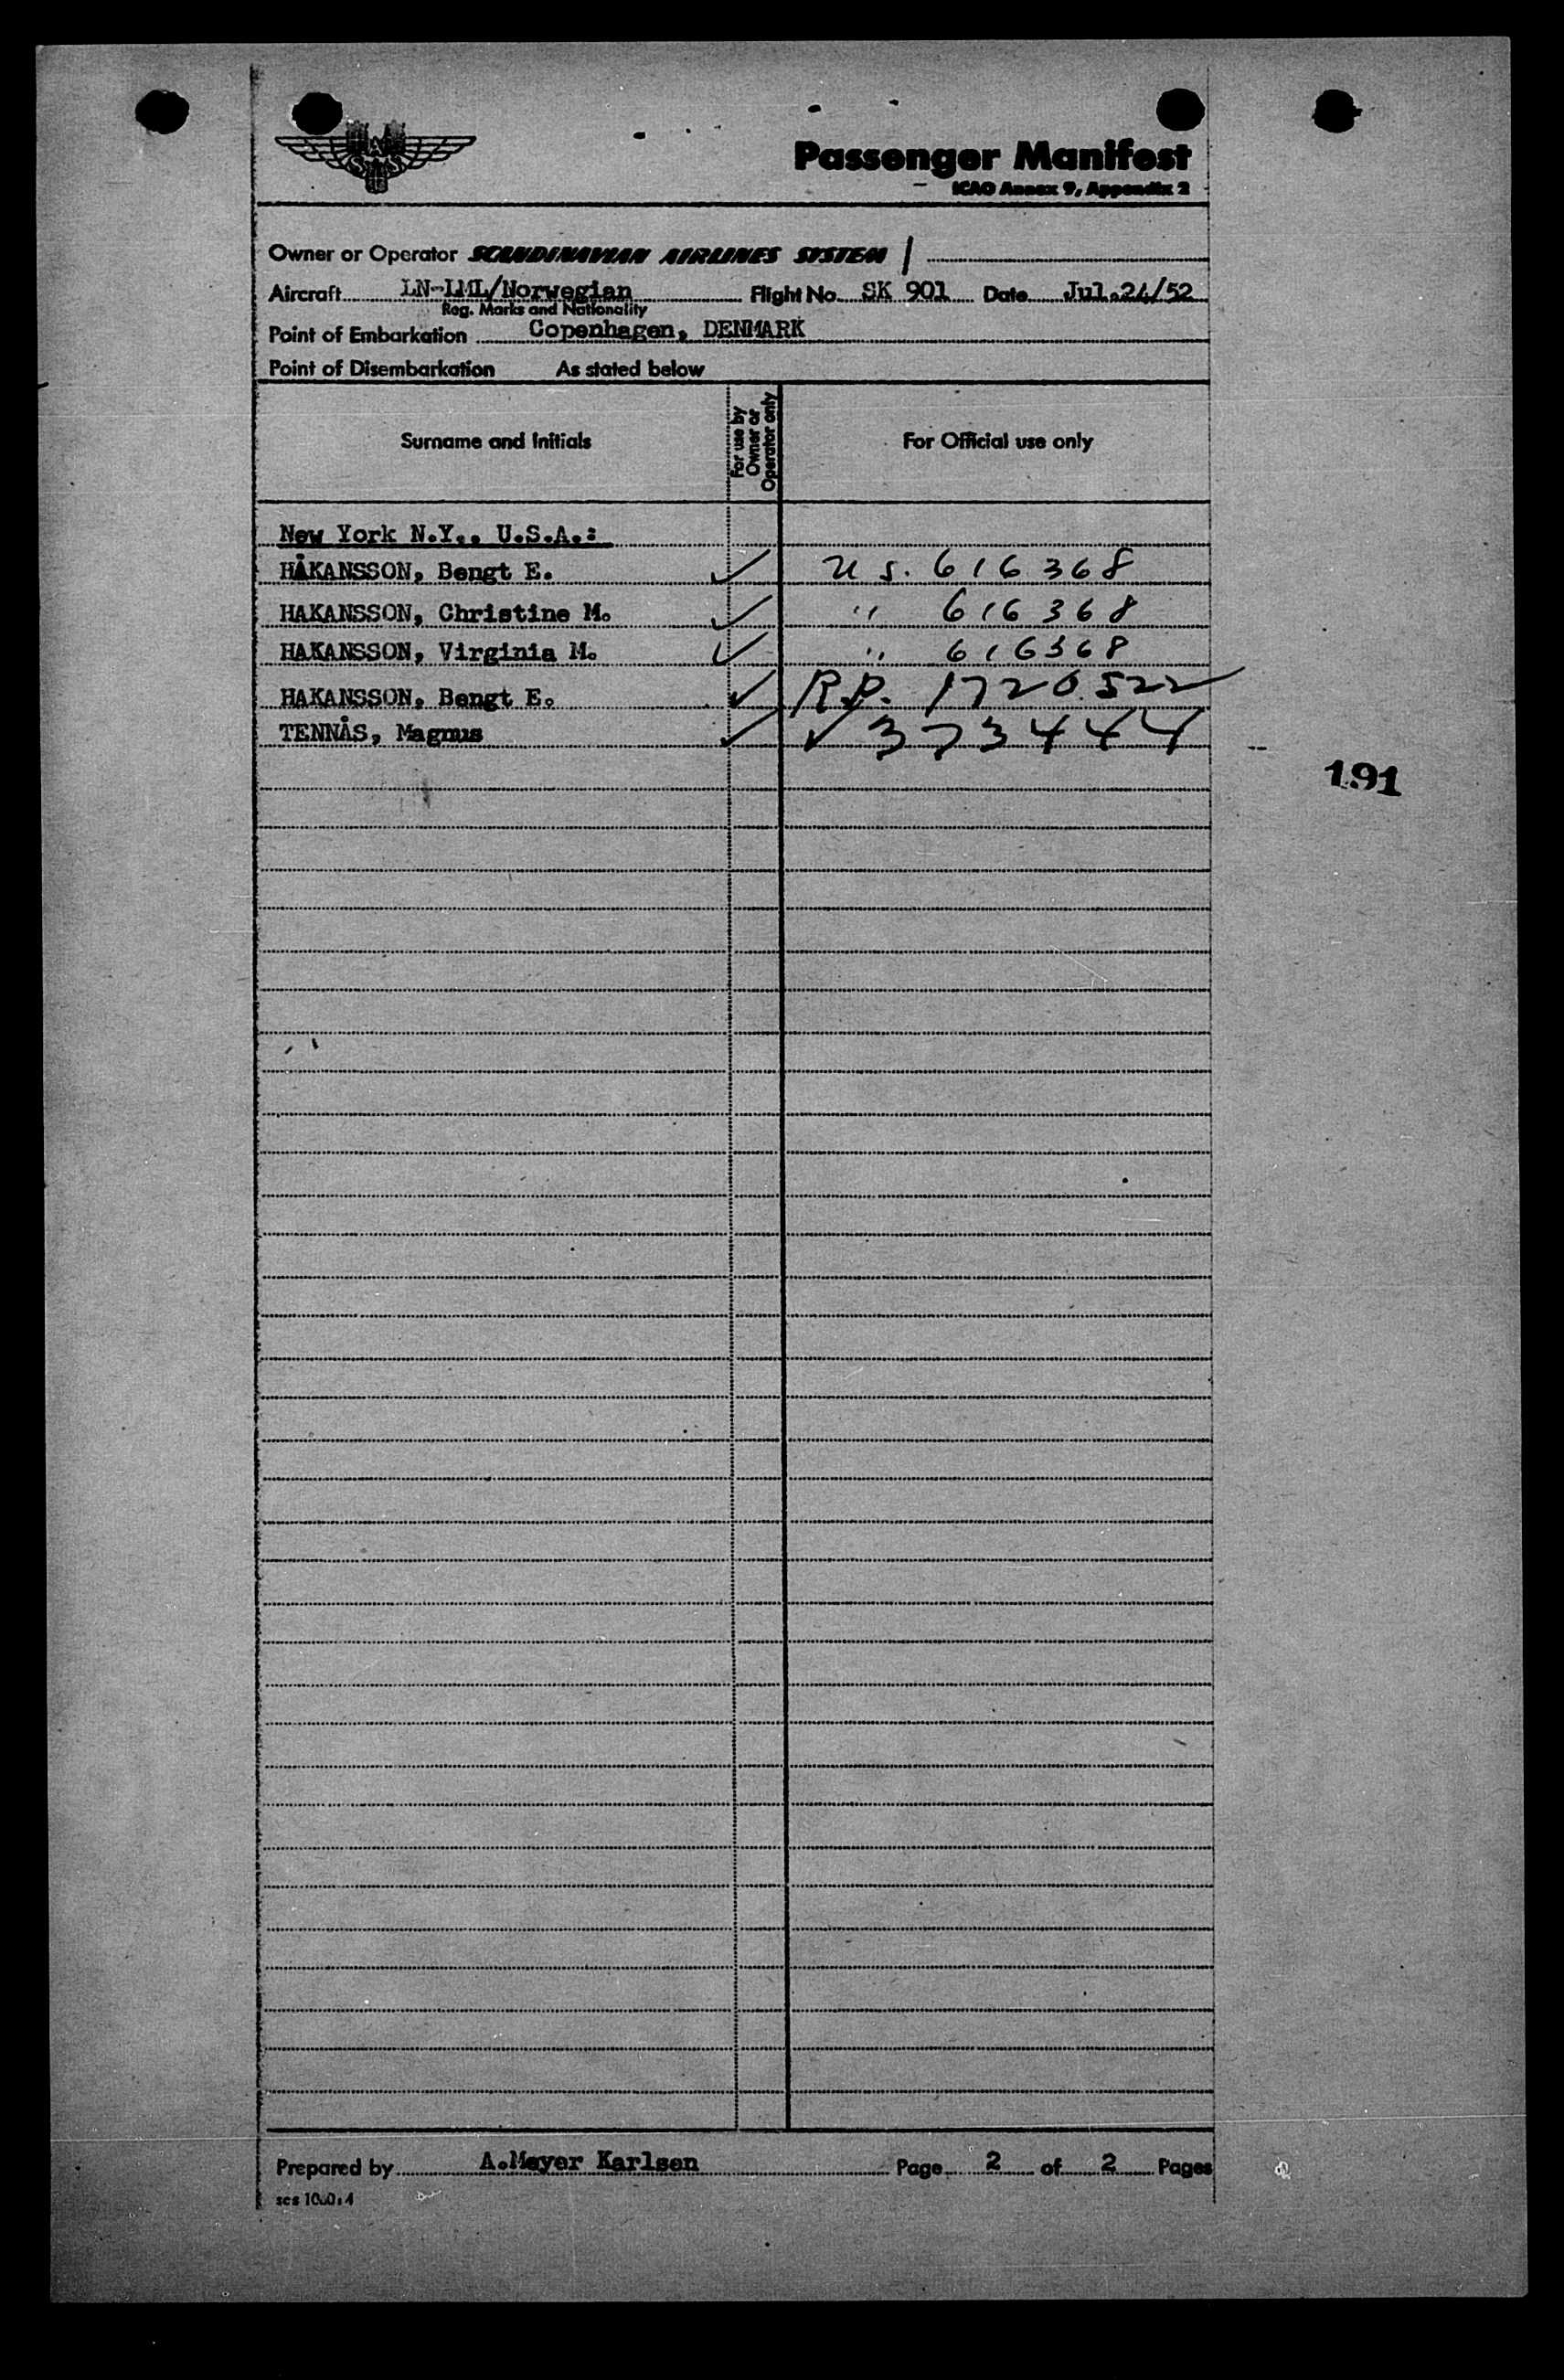 SAS
Passenger Manifest
ICAO Annex 9, Appendix 2
Owner or Operator SCANDINAVIAN AIRLINES SYSTEM
Aircraft LN-LML/Norwegian Flight No. SK 901 Date Jul.24/52
Reg. Marks and Nationality
Point of Embarkation Copenhagen, DENMARK
Point of Disembarkation As stated below
Surname and Initials For use by Owner or Operator only For Official use only
New York N.Y., U.S.A.:
HÅKANSSON, Bengt E. ✓ U S. 616368
HAKANSSON, Christine M. ✓ " 616368
HAKANSSON, Virginia M. ✓ " 616368
HAKANSSON, Bengt E. ✓ R.P. 1720522
TENNÅS, Magnus ✓ ✓ 373444
191
Prepared by A.Meyer Karlsen Page 2 of 2 Pages